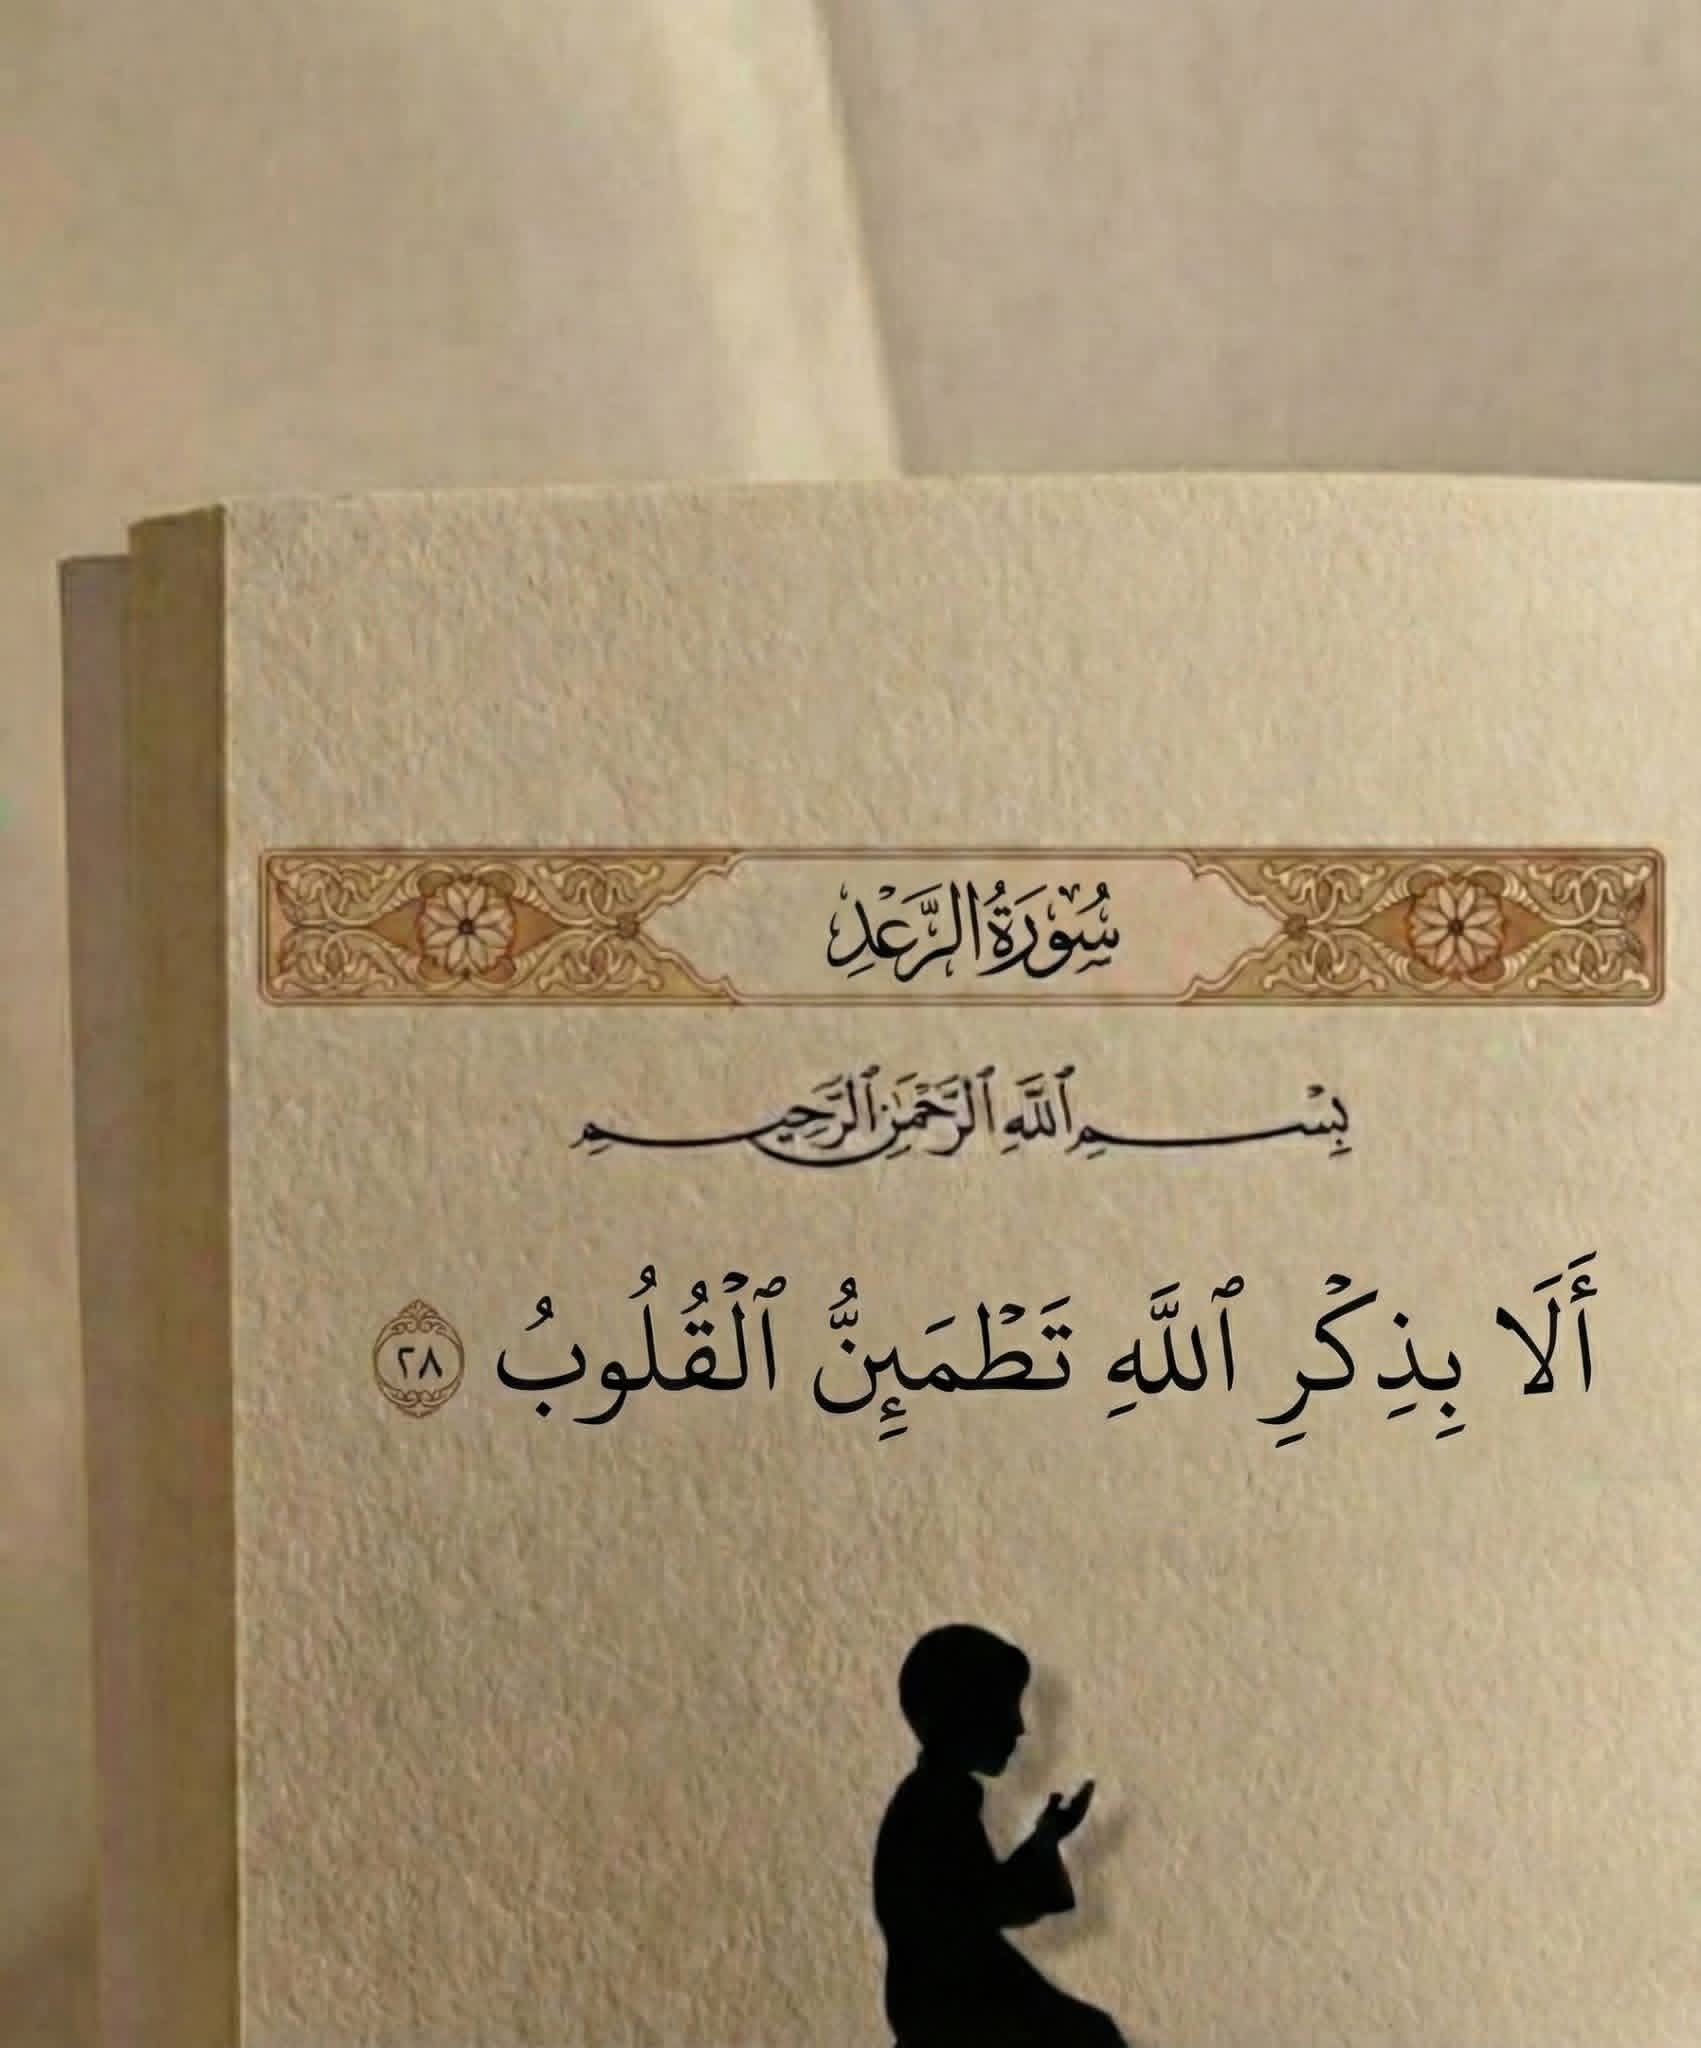 سُورَةُ الرَّعْدِ
بِسْمِ ٱللَّهِ ٱلرَّحْمَٰنِ ٱلرَّحِيمِ
أَلَا بِذِكْرِ ٱللَّهِ تَطْمَئِنُّ ٱلْقُلُوبُ ٢٨